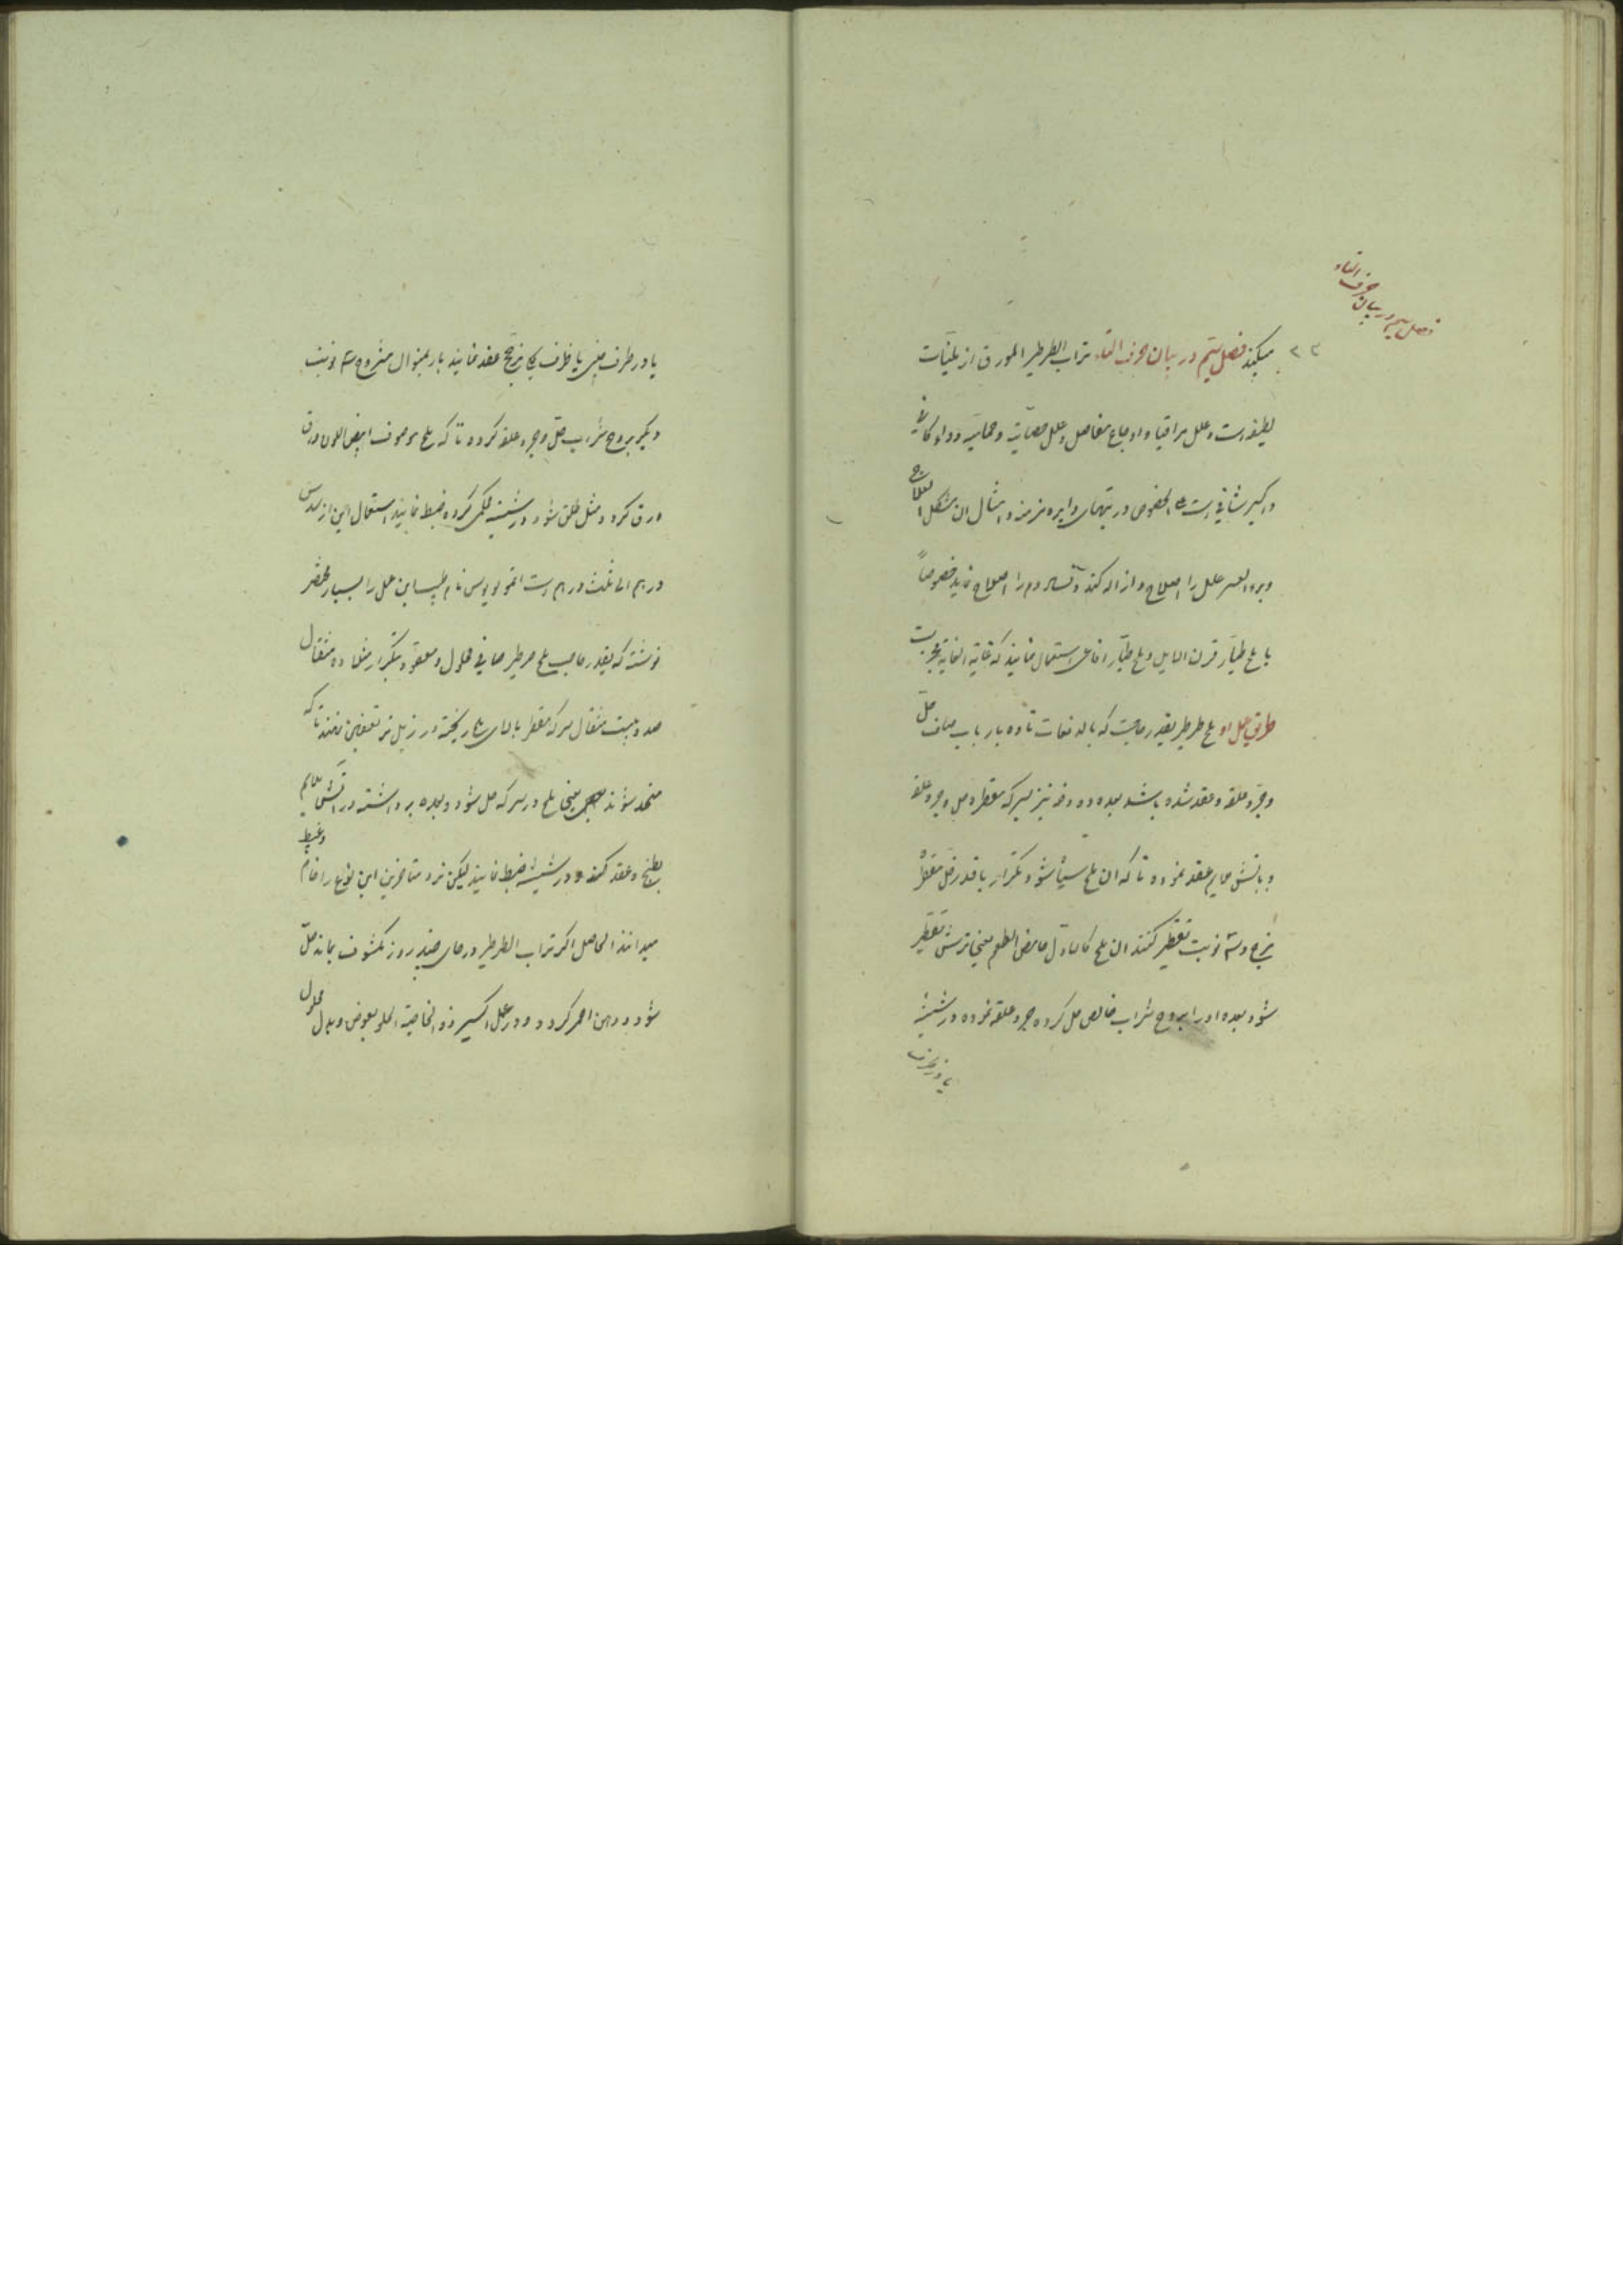 فصل سیم در بیان حرف التاء
میکند فصل سیم در بیان حرف التاء تراب الطرطیر المورق از ملینات
لطیفه است و علل مراقیا و اوجاع مفاصل و علل حصاتیه و حمائیه
و اکسیر شافی است بالخصوص در تبهای دایره مزمنه و امثال ان مشکل العلاج
علل را اصلاح و ازاله کند و فساد دم را اصلاح نماید خصوصاً
با ملح طیار قرن الایل و ملح طیار افاعی استعمال نمایند که غایة الغایة مجربست
طریق عمل او ملح طرطیر بقدر حاجت که بالدفعات تا ده بار باب صاف حل
و جر و علقه و عقد شده باشد بعده ده دفعه نیز بسرکه مقطره حل و جر و علقه
و باتش حمایم عقد نموده تا که ان ملح شود بتکرار با قدر خل مقطر
مزج و سه نوبت تقطیر کنند ان ملح کالاول حامض الطعم یعنی ترش تقطیر
شود بعده او را بروح شراب خالص حل کرده جر و علقه نموده در شیشه
یا در ظرف
یا در ظرف چینی یا ظرف عقد نمایند بار بمنوال مشروح سه نوبت
دیگر بروح شراب حل و جر و علقه کرده تا که ملح موصوف ابیض اللون ورق
ورق کردد مثل طلق شود در شیشه محکم کرده ضبط نمایند استعمال این از سدس
درهم الی ثلث درهم است نام طبیب این عمل را بسیار مختصر
نوشته که بقدر حاجت ملح طرطیر صافی محلول و معقود بتکرار مثلا ده مثقال
صد و بیست مثقال سرکه مقطر بالای ریخته در زبل تر تعفین نهند تا که
متحد شوند یعنی ملح در سرکه حل شود و بعده برداشته در اتش حمایم
بطبخ و عقد کنند و در شیشه ضبط نمایند لیکن نزد متاخرین این نوع را خام
میدانند الحاصل اکر تراب الطرطیر در جای چند روز مکشوف بماند حل
شود و دهن احمر کردد و در عمل اکسیر ذو الخاصیة الحلو بعوض و بدل محلول